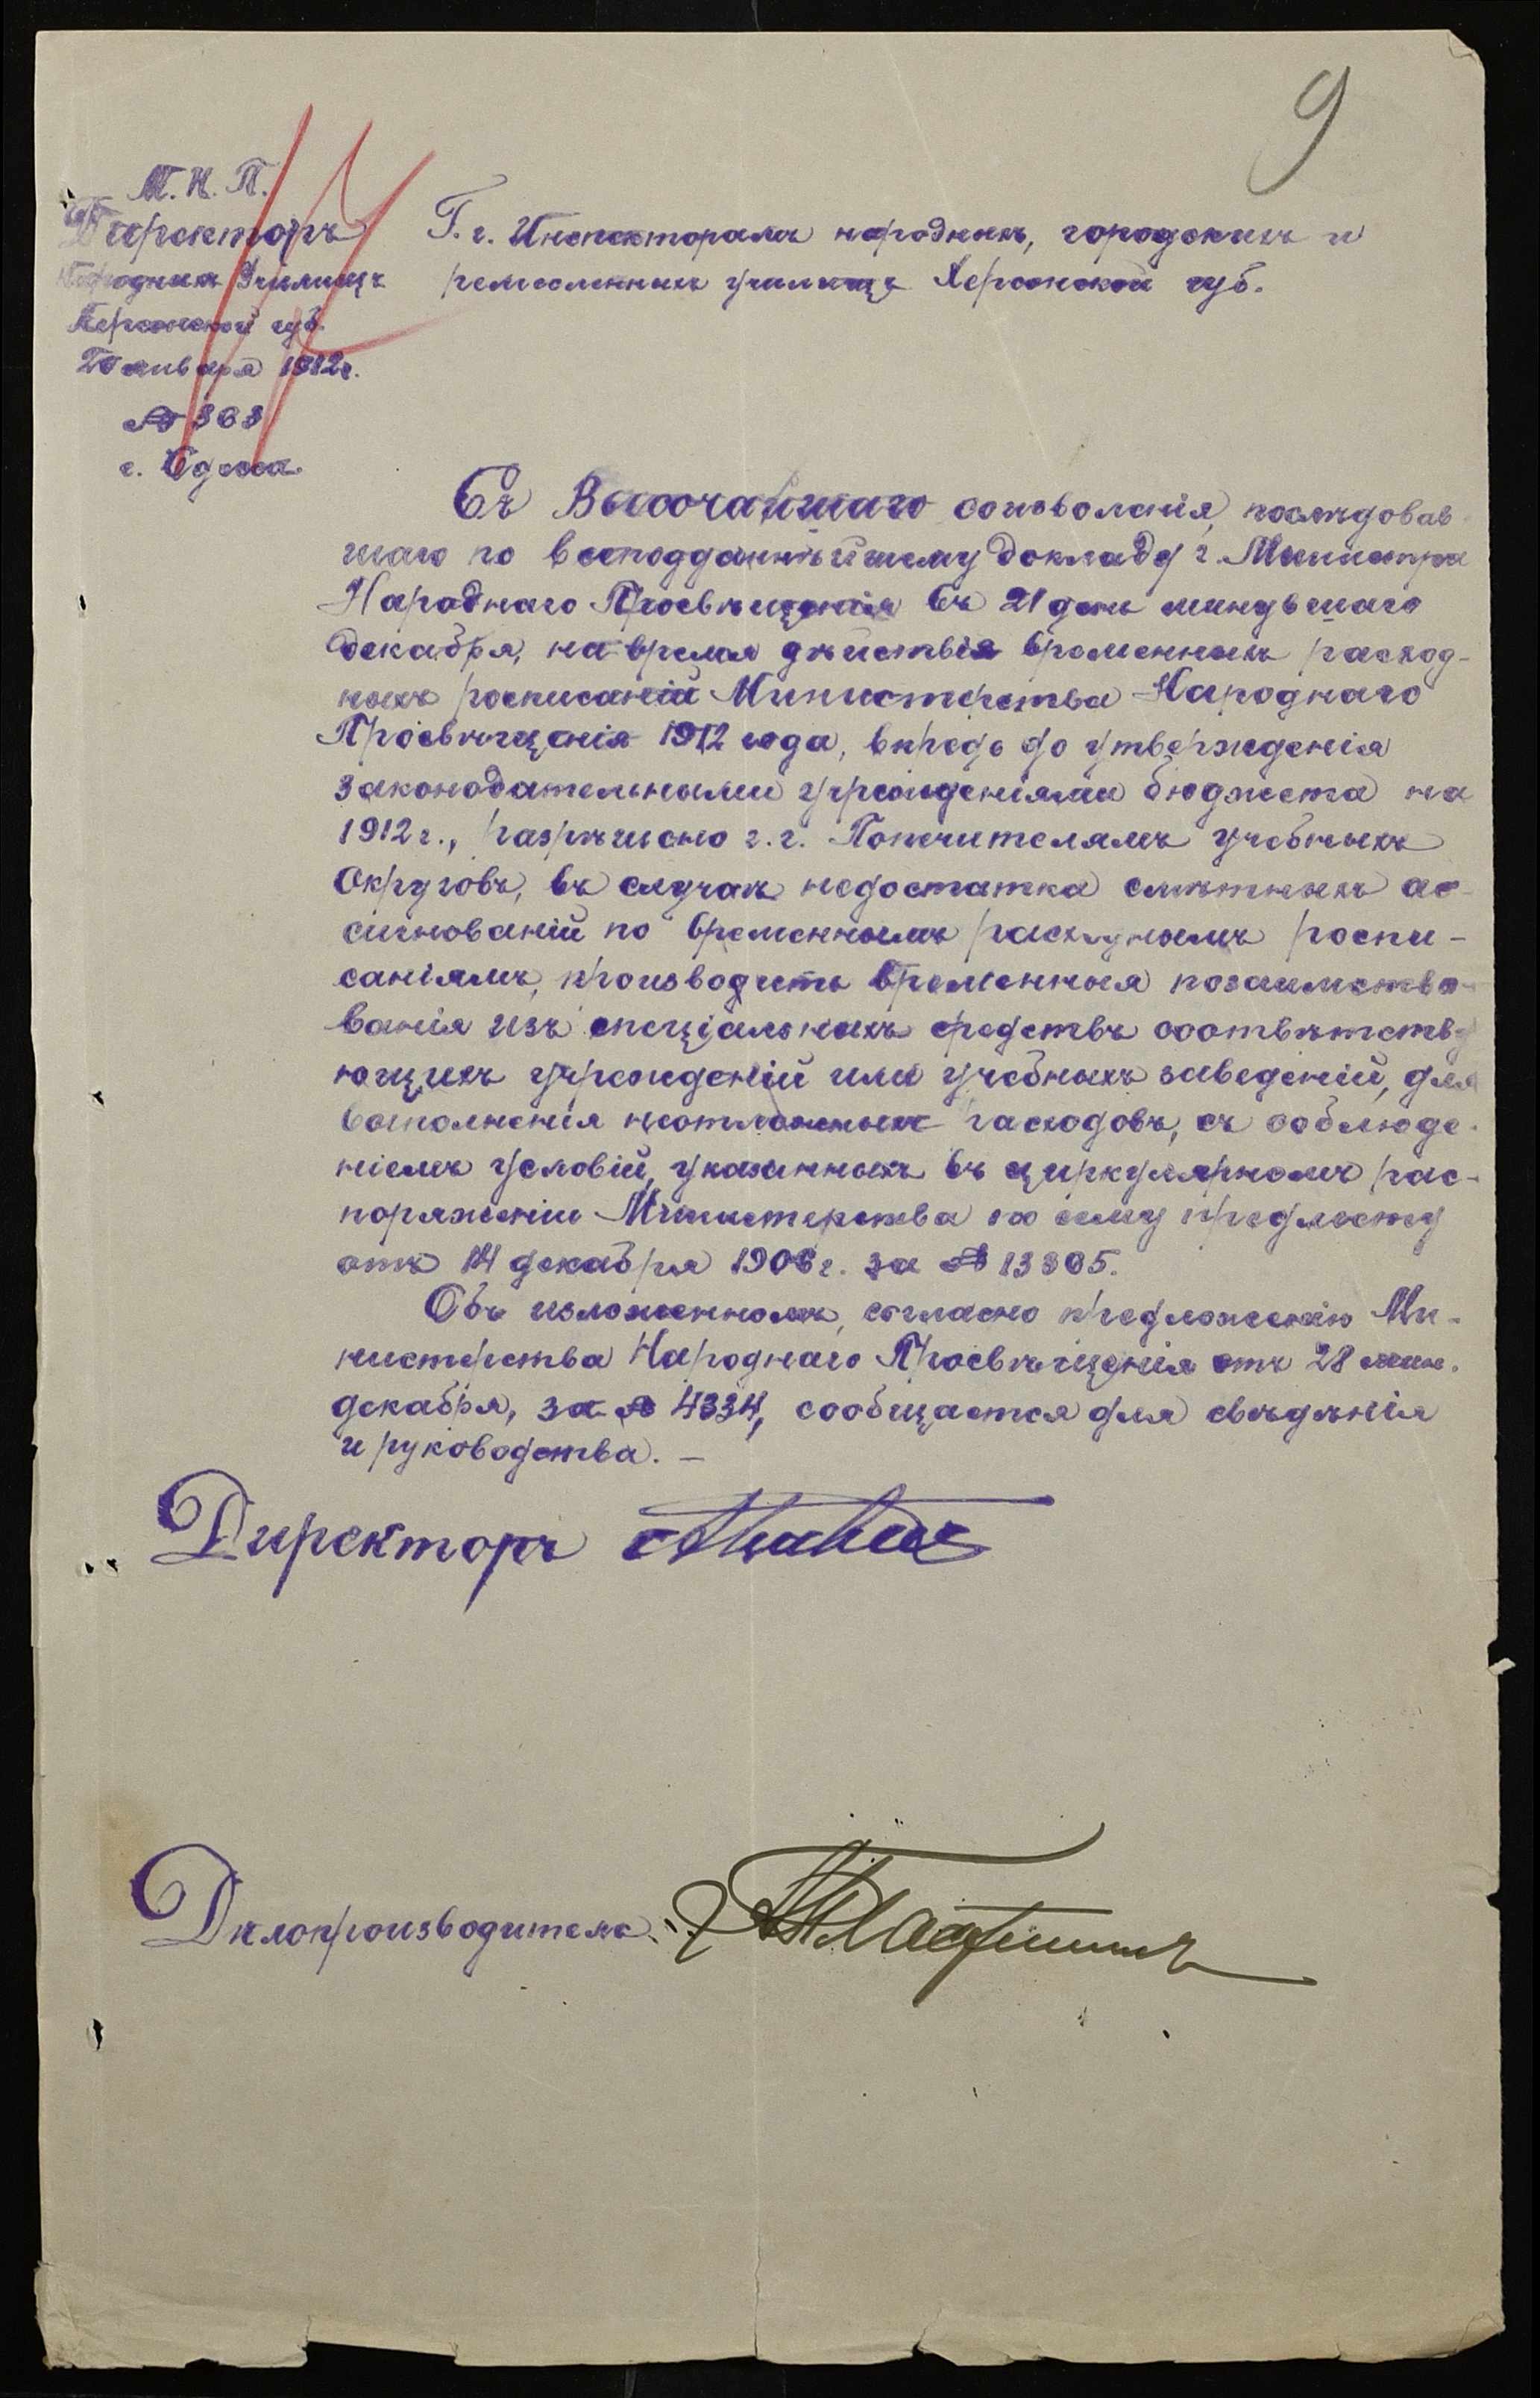 9
М. Н. П.
Директоръ
Народныхъ Училищъ
Херсонской губ.
января 1912г.
№ 363
г. Одесса.
Г. г. Инспекторамъ народныхъ, городскихъ и
ремесленныхъ училищъ Херсонской губ.
Съ Высочайшаго соизволенія, послѣдовав
шаго по всеподданнѣйшему докладу г. Министра
Народнаго Просвѣщенія въ 21 день минувшаго
декабря, на время дѣйствія временныхъ расход-
ныхъ росписаній Министерства Народнаго
Просвѣщенія 1912 года, впредь до утвержденія
законодательными учрежденіями бюджета на
1912 г., разрѣшено г. г. Попечителямъ учебныхъ
Округовъ, въ случаѣ недостатка смѣтныхъ ас-
сигнованій по временнымъ расходнымъ роспи-
саніямъ, производить временныя позаимство-
ванія изъ спеціальныхъ средствъ соотвѣтству
ющихъ учрежденій или учебныхъ заведеній, для
выполненія неотложныхъ расходовъ, съ соблюде-
ніемъ условій, указанныхъ въ циркулярномъ рас-
поряженіи Министерства по сему предмету
отъ 14 декабря 1906 г. за № 13305.
Объ изложенномъ, согласно предложенію Ми-
нистерства Народнаго Просвѣщенія отъ 28 мин.
декабря, за № 4334, сообщается для свѣдѣнія
и руководства. —
Директоръ
Дѣлопроизводитель